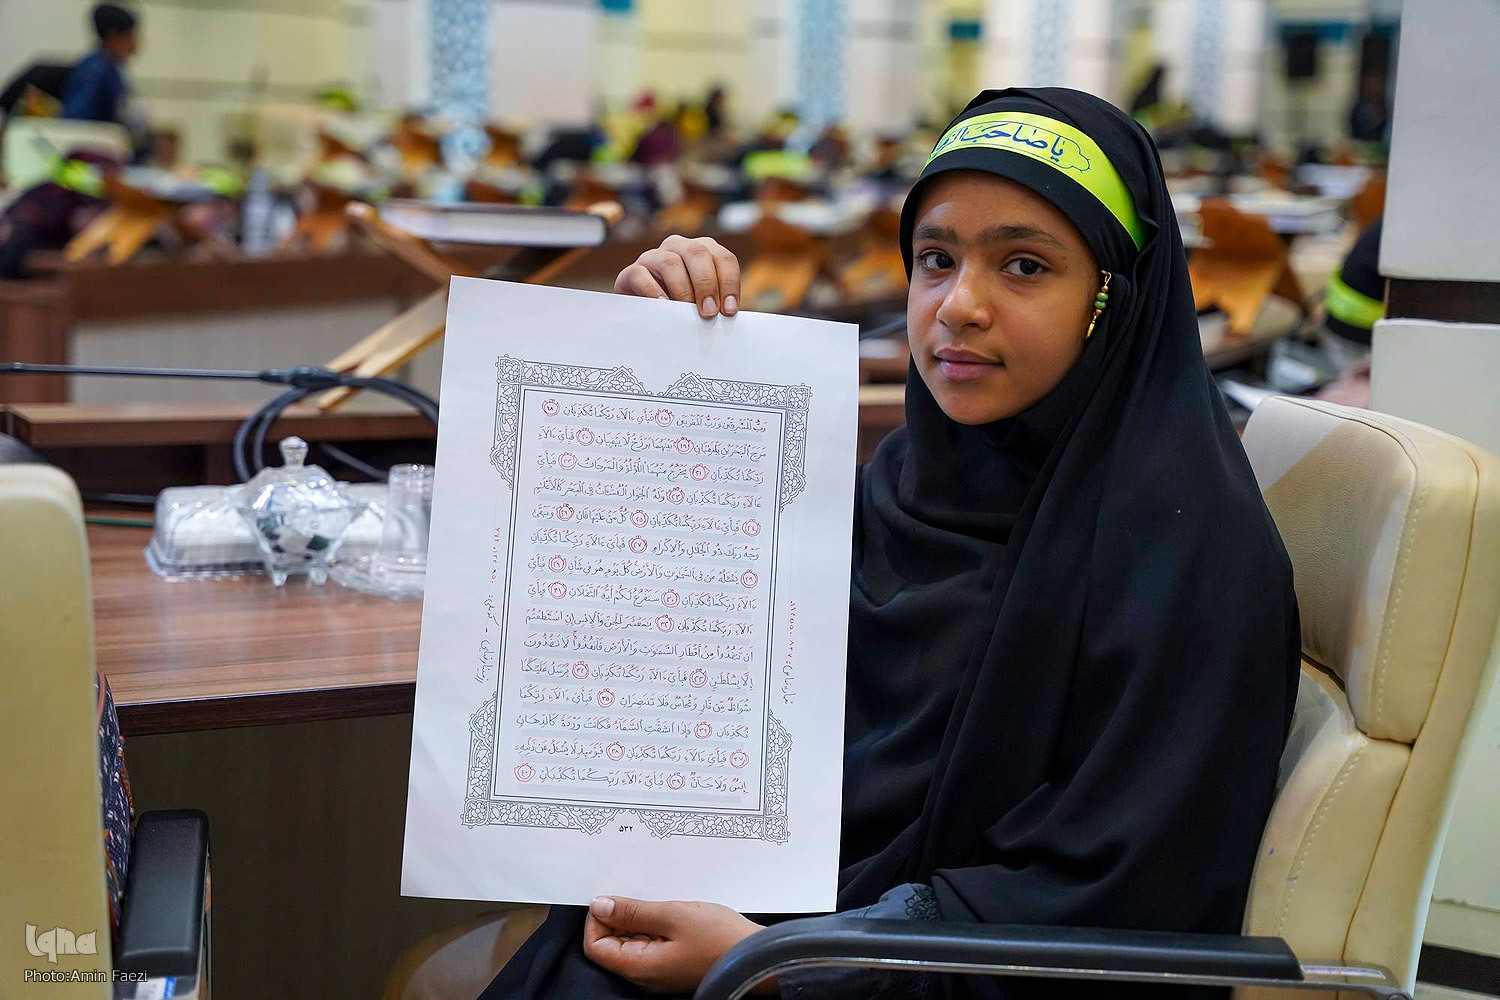 یا صاحب
رَبُّ ٱلْمَشْرِقَيْنِ وَرَبُّ ٱلْمَغْرِبَيْنِ ١٧ فَبِأَيِّ ءَالَآءِ رَبِّكُمَا تُكَذِّبَانِ ١٨
مَرَجَ ٱلْبَحْرَيْنِ يَلْتَقِيَانِ ١٩ بَيْنَهُمَا بَرْزَخٌ لَّا يَبْغِيَانِ ٢٠ فَبِأَيِّ ءَالَآءِ
رَبِّكُمَا تُكَذِّبَانِ ٢١ يَخْرُجُ مِنْهُمَا ٱللُّؤْلُؤُ وَٱلْمَرْجَانُ ٢٢ فَبِأَيِّ
ءَالَآءِ رَبِّكُمَا تُكَذِّبَانِ ٢٣ وَلَهُ ٱلْجَوَارِ ٱلْمُنشَـَٔاتُ فِى ٱلْبَحْرِ كَٱلْأَعْلَٰمِ
٢٤ فَبِأَيِّ ءَالَآءِ رَبِّكُمَا تُكَذِّبَانِ ٢٥ كُلُّ مَنْ عَلَيْهَا فَانٍ ٢٦ وَيَبْقَىٰ
وَجْهُ رَبِّكَ ذُو ٱلْجَلَٰلِ وَٱلْإِكْرَامِ ٢٧ فَبِأَيِّ ءَالَآءِ رَبِّكُمَا تُكَذِّبَانِ
٢٨ يَسْـَٔلُهُۥ مَن فِى ٱلسَّمَٰوَٰتِ وَٱلْأَرْضِ كُلَّ يَوْمٍ هُوَ فِى شَأْنٍ ٢٩ فَبِأَيِّ
ءَالَآءِ رَبِّكُمَا تُكَذِّبَانِ ٣٠ سَنَفْرُغُ لَكُمْ أَيُّهَ ٱلثَّقَلَانِ ٣١ فَبِأَيِّ
ءَالَآءِ رَبِّكُمَا تُكَذِّبَانِ ٣٢ يَٰمَعْشَرَ ٱلْجِنِّ وَٱلْإِنسِ إِنِ ٱسْتَطَعْتُمْ
أَن تَنفُذُوا۟ مِنْ أَقْطَارِ ٱلسَّمَٰوَٰتِ وَٱلْأَرْضِ فَٱنفُذُوا۟ لَا تَنفُذُونَ
إِلَّا بِسُلْطَٰنٍ ٣٣ فَبِأَيِّ ءَالَآءِ رَبِّكُمَا تُكَذِّبَانِ ٣٤ يُرْسَلُ عَلَيْكُمَا
شُوَاظٌ مِّن نَّارٍ وَنُحَاسٌ فَلَا تَنتَصِرَانِ ٣٥ فَبِأَيِّ ءَالَآءِ رَبِّكُمَا
تُكَذِّبَانِ ٣٦ فَإِذَا ٱنشَقَّتِ ٱلسَّمَآءُ فَكَانَتْ وَرْدَةً كَٱلدِّهَانِ
٣٧ فَبِأَيِّ ءَالَآءِ رَبِّكُمَا تُكَذِّبَانِ ٣٨ فَيَوْمَئِذٍ لَّا يُسْـَٔلُ عَن ذَنۢبِهِۦٓ
إِنسٌ وَلَا جَآنٌّ ٣٩ فَبِأَيِّ ءَالَآءِ رَبِّكُمَا تُكَذِّبَانِ ٤٠
۵۳۲
Iqna
Photo:Amin Faezi